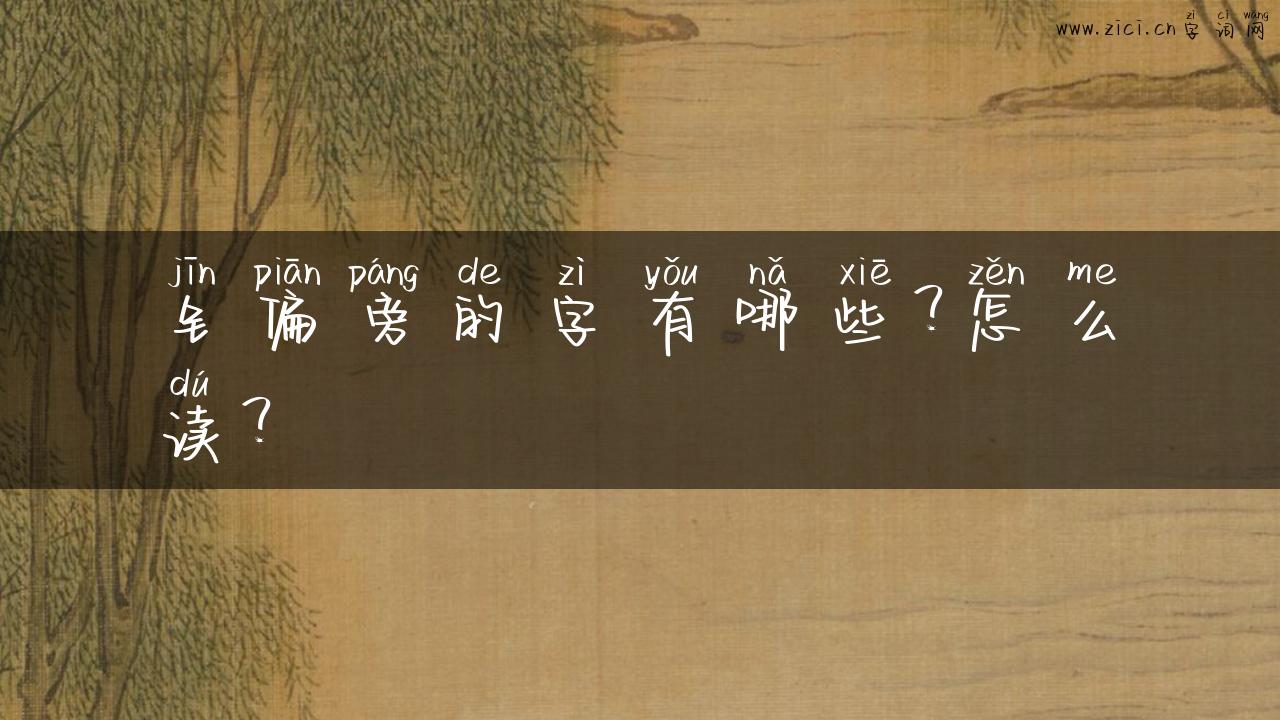 zì cí wǎng
www.zici.cn字词网
jīn piān páng de zì yǒu nǎ xiē zěn me
钅偏旁的字有哪些？怎么
dú
读？